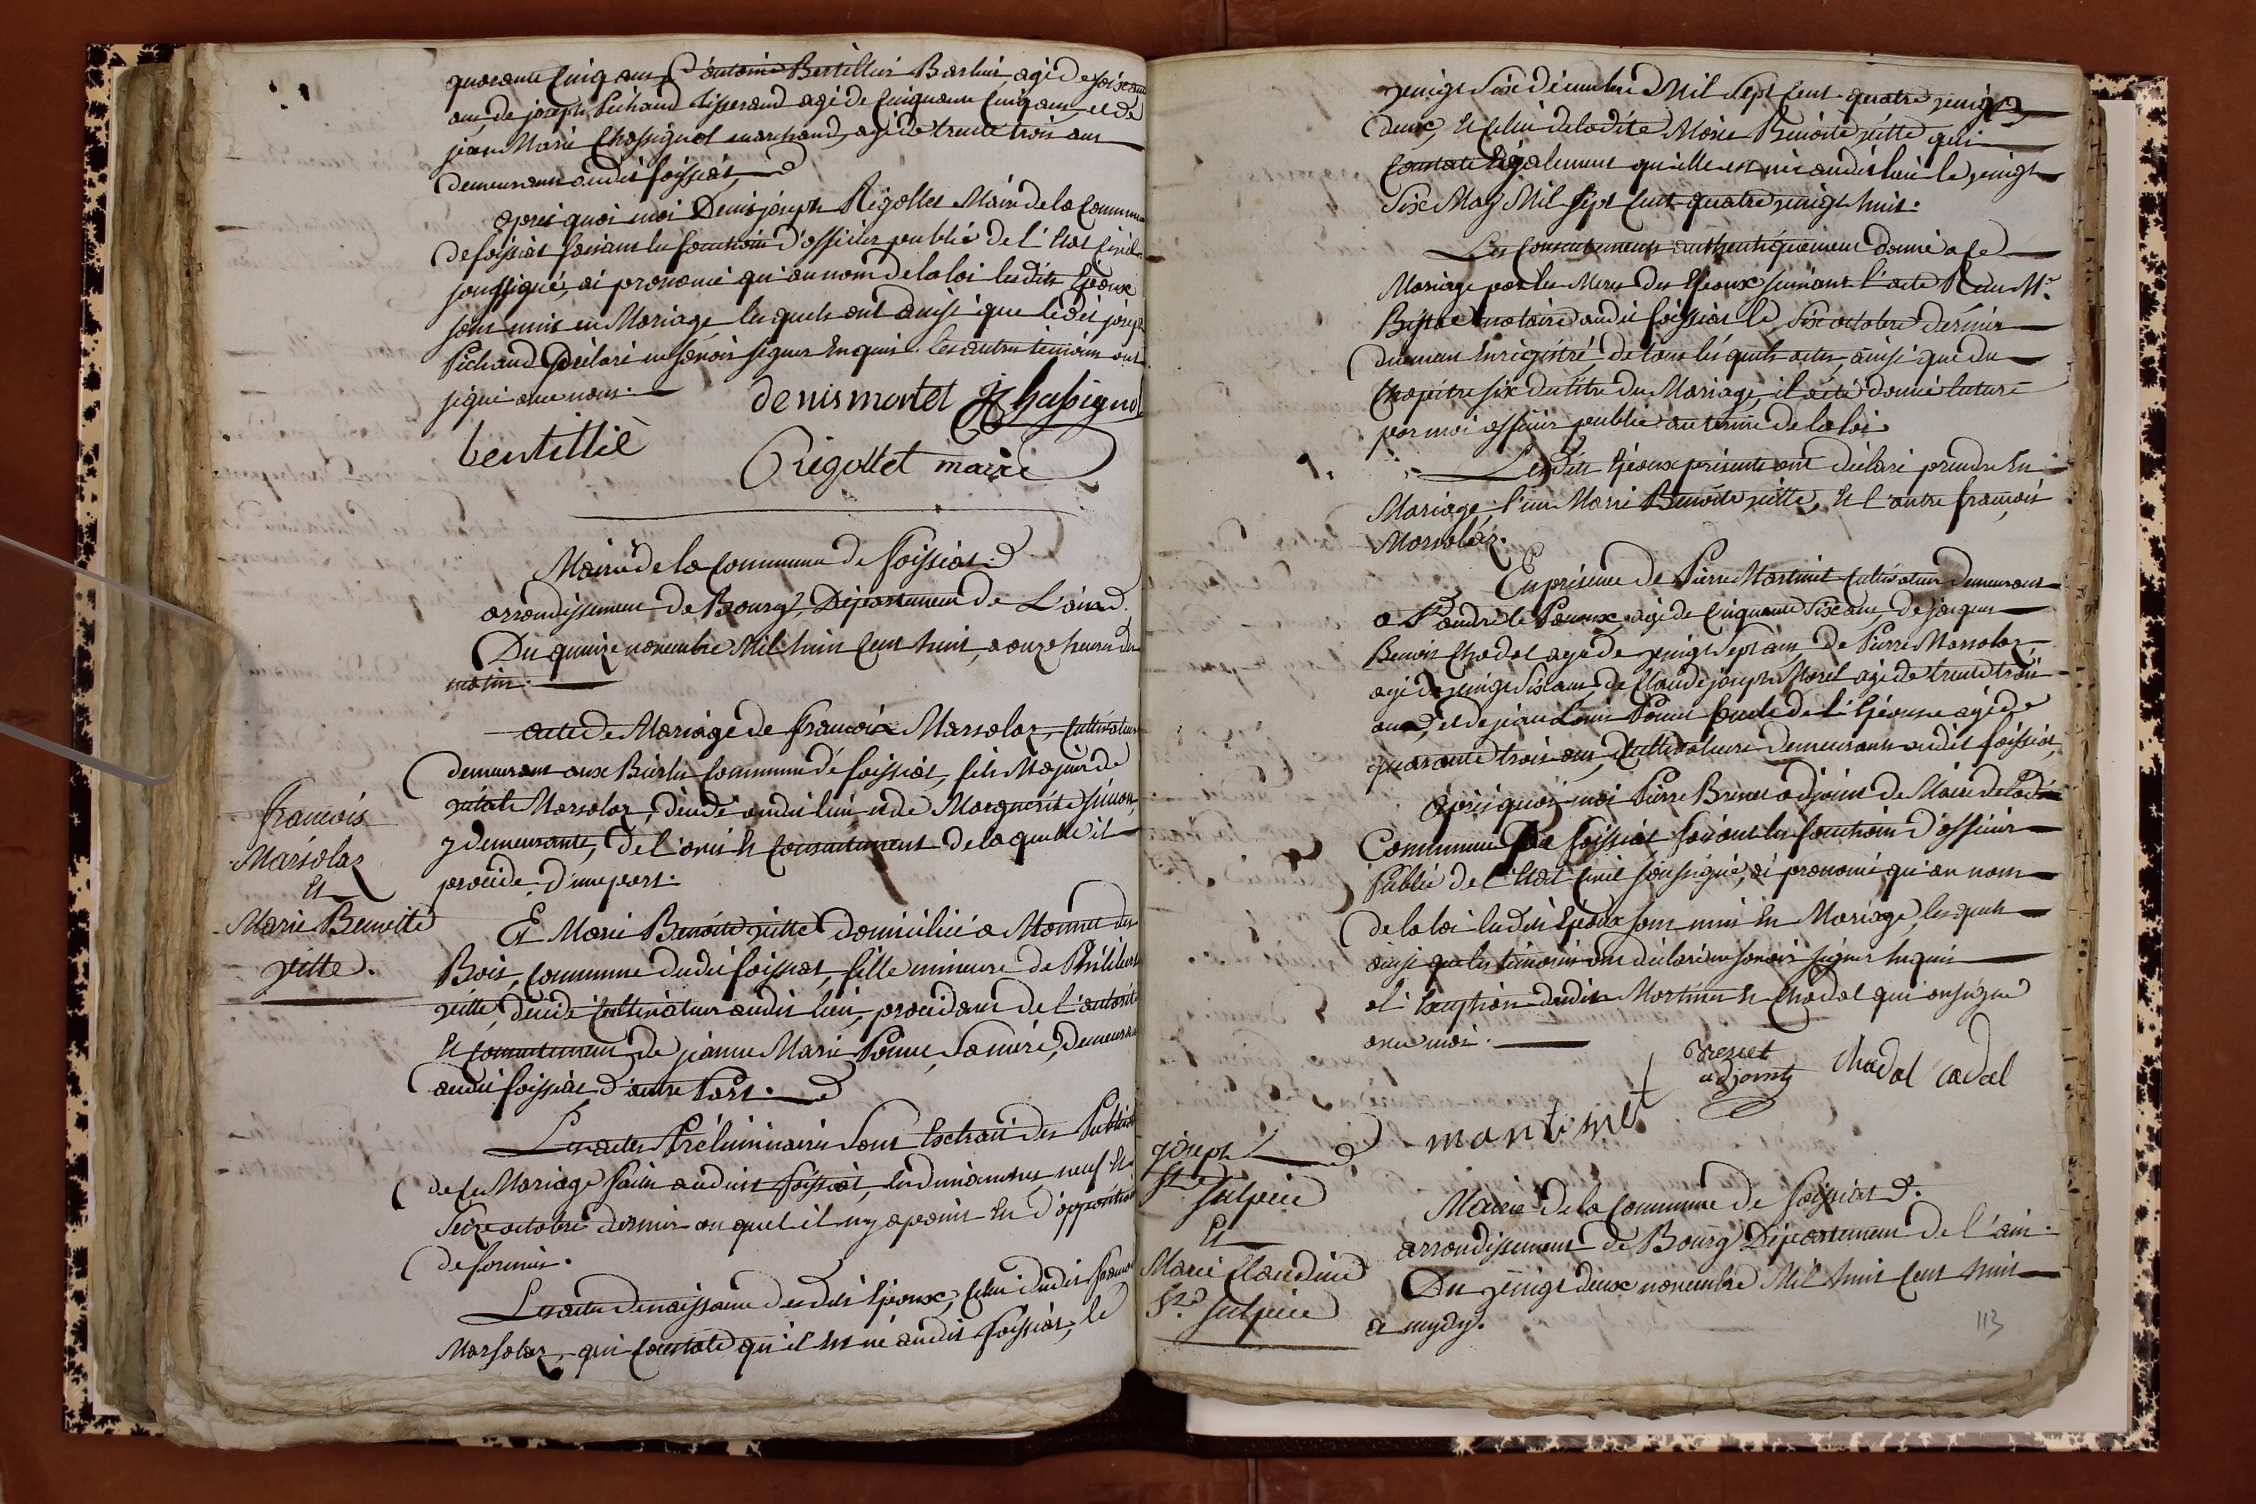 quarante Cinq ans, d'antoine Bertillier Barbier, agé de soixante
ans, de joseph Pichaud tisserand agé de Cinquante Cinq ans, et de
jean Marie Chassignol marchand, agé de trente trois ans
demeurants audit foissiat.
après quoi moi Denis joseph Rigollet Maire de la Commune
de foissiat faisant les fonctions d'officier public de l'Etat Civil
soussigné, ai prononcé qu'au nom de la loi lesdits Epoux
sont unis en Mariage lesquels ont ainsi que ledit joseph
Pichaud déclaré ne savoir signer enquis. les autres témoins ont
signé avec nous.
denis mortet jChassignol
bertillié
Rigollet maire
Mairie de la Commune de foissiat
arrondissement de Bourg, Département de L'ain.
Du quinze novembre Mil huit Cent huit, a onze heures du
matin.
acte de Mariage de françois Marsolaz, Cultivateur
demeurant aux Burles Commune de foissiat, fils Majeur de
vitale Marsolaz, décédé audit lieu et de Marguerite simon,
y demeurante, de l'avis et Consentement de laquelle il
procède, d'une part.
françois
Marsolaz
Et
Marie Benoite
vitte.
Et Marie Benoite vitte domiciliée a Monnet des
Bois, Commune dudit foissiat, fille mineure de Philibert
vitte, décédé Cultivateur audit lieu, procédant de l'autorité
et Consentement de jeanne Marie Poncet, sa mère, demeurant
audit foissiat d'autre Part.
Les actes Préliminaires sont Extrait des Publications
de ce Mariage faites audit foissiat, les dimanches neuf et
seize octobre dernier au quel il n'y a point eu d'opposition
de formée.
Les actes de naissance desdits Epoux, Celui dudit françois
Marsolaz, qui Constate qu'il est né audit foissiat, le
vingt six décembre Mil sept Cent quatre vingt
deux, et Celui de ladite Marie Benoite vitte qui
Constate également qu'elle est née audit lieu le vingt
six May Mil sept Cent quatre vingt huit.
Les Consentements authentiquement donné a Ce
Mariage par les Meres des Epoux suivant l'acte Reçu Me.
notaire audit foissiat le six octobre dernier
duement Enregistré, de tous lesquels actes, ainsi que du
Chapitre six du titre du Mariage, il a été donné lecture
par moi officier public au terme de la loi.
Lesdits Epoux présents ont déclaré prendre En
Mariage, l'un Marie Benoite vitte, Et l'autre françois
Marsolaz.
En présence de Pierre Martinet Cultivateur demeurant
a St andré le Panoux, agé de Cinquante six ans, de jacques
Benoit Chadal agé de vingt sept ans, de Pierre Marsolaz,
agé de vingt six ans, de Claude joseph Morel agé de trente trois
ans, et de jean Louis Poncet oncle de l'Epouse agé de
quarante trois ans, Cultivateurs demeurants audit foissiat,
après quoi, moi Pierre Brevet adjoint de Maire de ladite
Commune de foissiat faisant les fonctions d'officier
Public de l'Etat Civil soussigné, ai prononcé qu'au nom
de la loi lesdits Epoux sont unis En Mariage, lesquels
ainsi que les témoins ont déclaré ne savoir signer Enquis
a l'Exception desdits Martinet et Chadal qui ont signé
avec moi.
Brevet
adjoint
Chadal Cadal
martinet
joseph
Ste
sulpice
Et
Marie Claudine
Ste sulpice
Mairie de la Commune de foissiat.
arrondissement de Bourg Département de l'ain.
Du vingt deux novembre Mil huit Cent huit
a mydy.
113